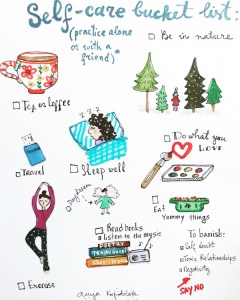 Self-care bucket list:
(practice alone
or with a
friend)*
Be in nature
Tea or Coffee
z-z-z
Do what you
Love
Travel
Sleep well
Daydream
Eat
Yummy things
Read books
& listen to the music
POETRY
To banish:
Self doubt
Toxic Relationships
Negativity
SAY NO
Exercise